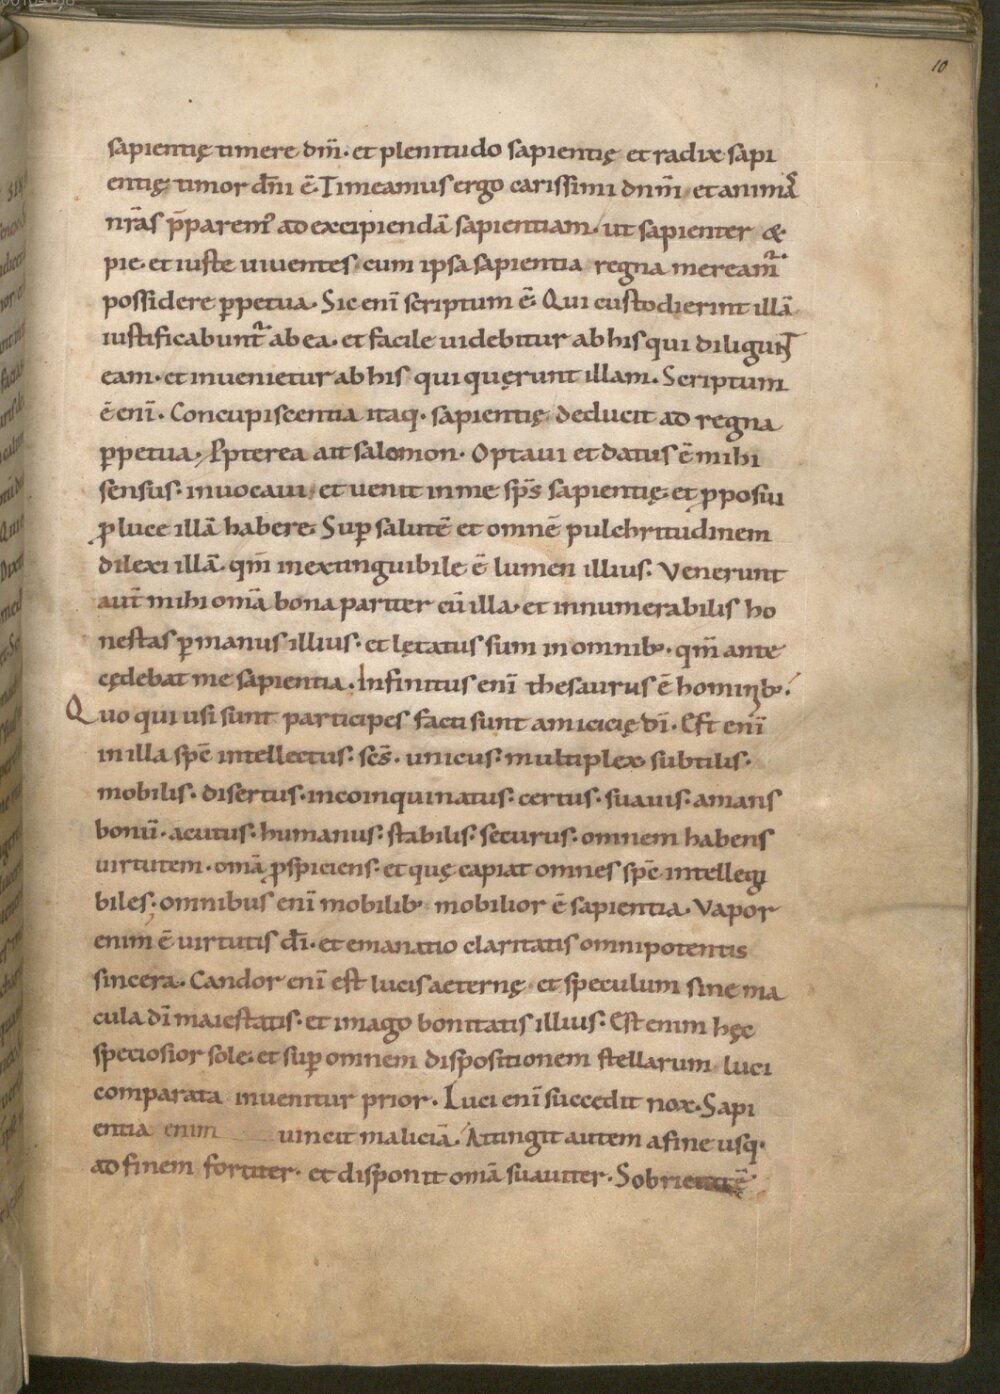 10
sapientię timere dm̄· et plenitudo sapientię et radix sapi
entię timor dn̄i ē. Timeamus ergo carissimi dnm̄ et animā
nrās p̄parem᾽ ad excipiendā sapientiam· ut sapienter &
pie· et iuste uiuentes cum ipsa sapientia regna meream̄
possidere ꝑpetua· Sic enī scriptum ē. Qui custodierint illā
iustificabunt̄ ab ea· et facile uidebitur ab his qui diligunt
eam· et inuenietur ab his qui quęrunt illam· Scriptum
ē enī· Concupiscentia itaq· sapientię deducit ad regna
ꝑpetua· Ppterea ait salomon· Optaui et datus ē mihi
sensus· inuocaui et uenit in me sp̄s sapientię· et ꝓposui
ꝓ luce illā habere· Suꝑ salutē et omnē pulchritudinem
dilexi illā· qm̄ inextinguibile ē lumen illius· Venerunt
aut̄ mihi omā bona pariter cū illa· et innumerabilis ho
nestas ꝑ manus illius· et lętatus sum in omnib᾽· qm̄ ante
cędebat me sapientia· Infinitus enī thesaurus ē hominib᾽·
Quo qui usi sunt participes facti sunt amicicię dī· Est enī
in illa spē intellectus· scs̄· unicus· multiplex· subtilis·
mobilis· disertus· incoinquinatus· certus· suauis· amans
bonū· acutus· humanus· stabilis· securus· omnem habens
uirtutem· omā ꝓspiciens· et quę capiat omnes spē intellegi
biles· omnibus enī mobilib᾽ mobilior ē sapientia· Vapor
enim ē uirtutis dī· et emanatio claritatis omnipotentis
sincera· Candor enī est lucis aeternę et speculum sine ma
cula dī maiestatis· et imago bonitatis illius· Est enim hęc
speciosior sole· et suꝑ omnem dispositionem stellarum luci
comparata inuenitur prior· Luci enī succedit nox· Sapi
entia enim uincit maliciā· Attingit autem a fine usq·
ad finem fortiter· et disponit omā suauiter· Sobrietatē